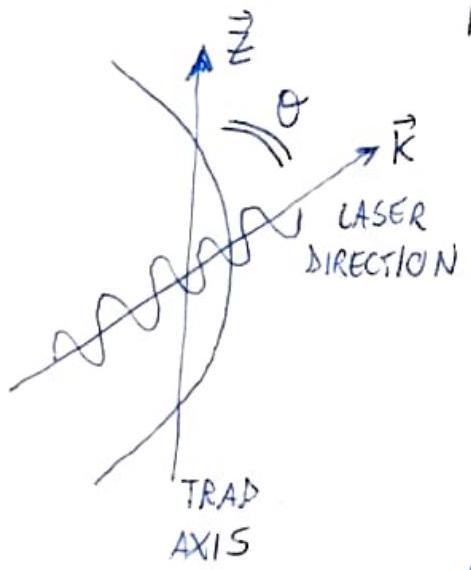 Z⃗
θ
k⃗
LASER
DIRECTION
TRAD
AXIS